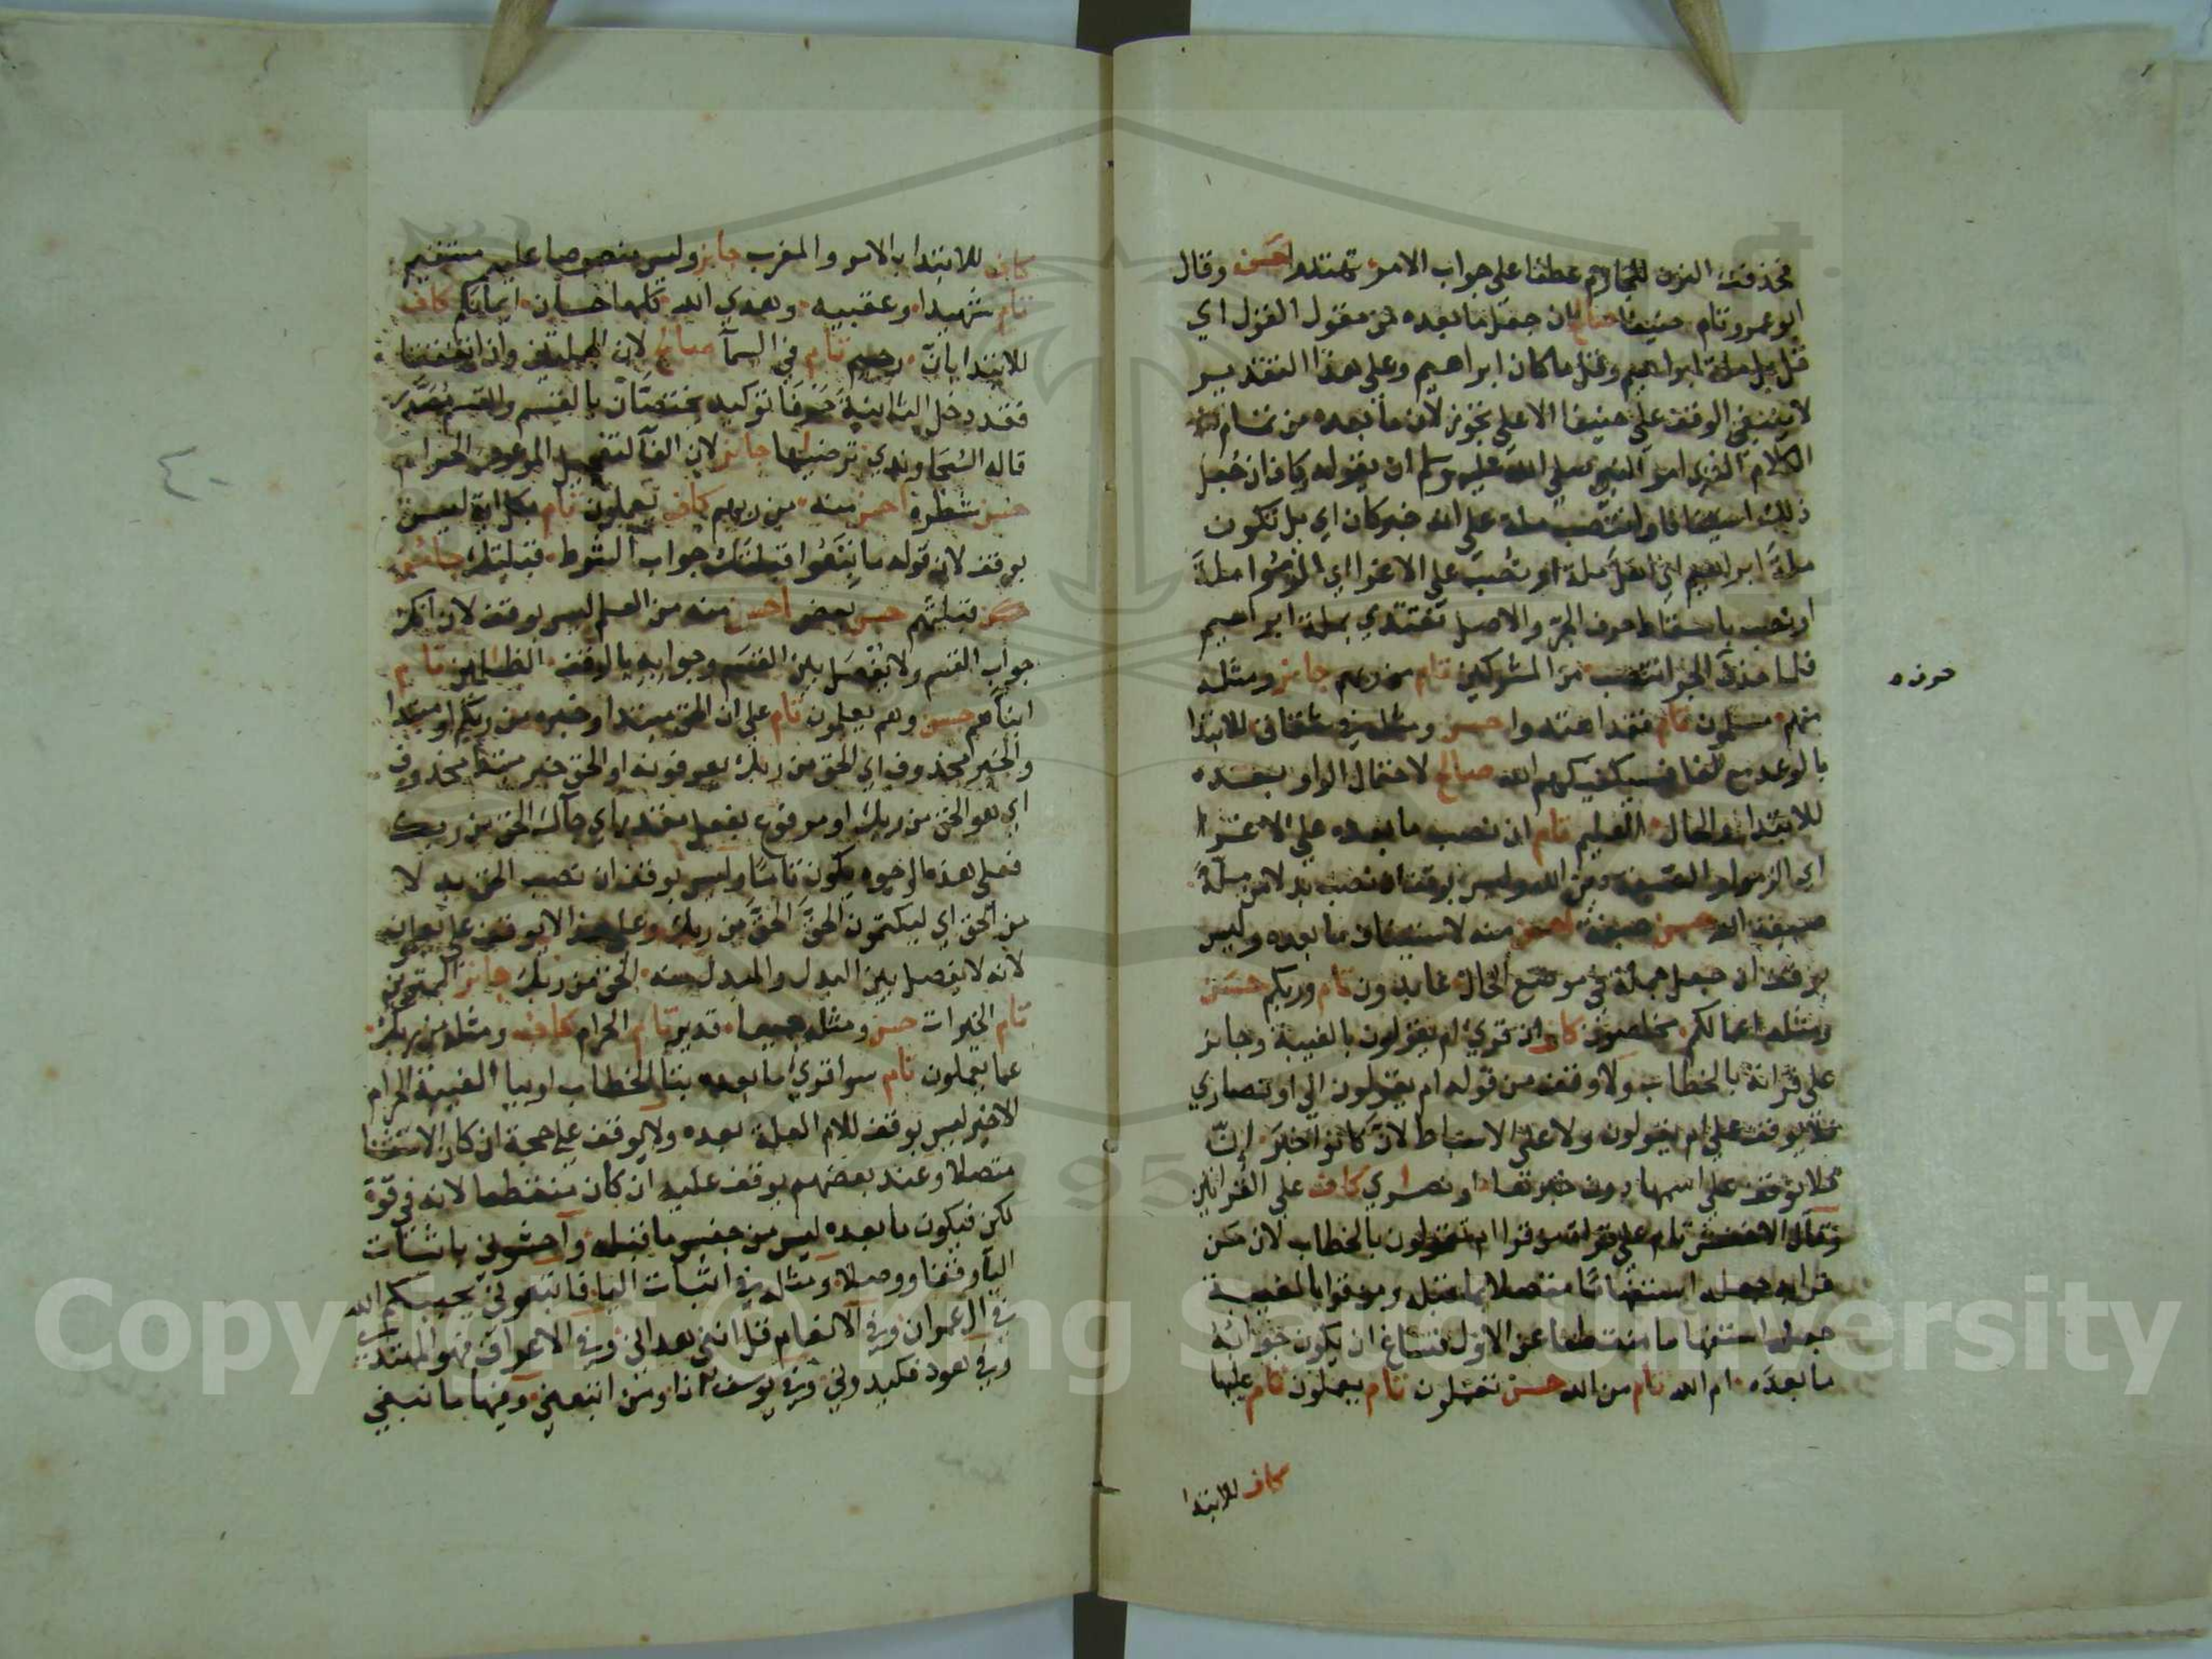 فحذفت النون للجازم عطفا على جواب الامر تهتدوا حسن وقال
ابو عمرو تام حنيفا صالح ان جعل ما بعده من مقول القول اي
قل بل ملة ابراهيم وقل ما كان ابراهيم وعلى هذا التقدير
لا ينبغي الوقف على حنيفا الا على تجوز لان ما بعده من تمام
الكلام الذي امر النبي صلى الله عليه وسلم ان يقوله وكاف ان جعل
ذلك استينافا وانتصب ملة على انه خبر كان اي بل تكون
ملة ابراهيم اي اهل ملة او نصب على الاغرا اي الزموا ملة
او نصب باسقاط حرف الجر والاصل نقتدي بملة ابراهيم
فلما حذف الجر انتصب من المشركين تام من ربهم جائز ومثله
حرف
منهم مسلمون تام فقد اهتدوا حسن ومثله في شقاق للابتدا
بالوعد مع الفا فسيكفيكهم الله صالح لاحتمال الواو بعده
للابتدا والحال العليم تام ان نصب ما بعده على الاغرا
اي الزموا وليس بوقف ان نصب بدلا من ملة
صبغة الله حسن صبغة احسن منه لاستيناف ما بعده وليس
بوقف ان جعل جملة في موضع الحال عابدون تام وربكم حسن
ومثله اعمالكم مخلصون كاف ان قرئ ام يقولون بالغيبة وجائز
على قراته بالخطاب ولا وقف من قوله ام يقولون الى او نصارى
فلا يوقف على ام يقولون ولا على الاسباط لان كانوا خبر ان
فلا يوقف على اسمها دون خبرها او نصارى كاف على القرائتين
وقال الاخفش تام على قراة من قرا ام تقولون بالخطاب لان من
قرا به جعله استفهاما متصلا بما قبله ومن قرا بالغيبة
جعله استفهاما منقطعا عن الاول فساغ ان يكون جوابه
ما بعده ام الله تام من الله حسن تعملون تام يعملون تام عليها
كاف للابتدا
كاف للابتدا بالامر والمغرب جائز وليس منصوصا عليه مستقيم
تام شهيدا وعقبيه وهدى الله كلها حسان ايمانكم كاف
للابتدا بان رحيم تام في السما صالح لان الجملتين وان اتفقتا
فقد دخل الثانية حرفا توكيد يختصان بالقسم والقسم مصدر
قاله السجاوندي ترضيها جائز لان الفا لتعجيل الموعود الحرام
حسن شطره احسن منه من ربهم كاف يعملون تام بكل اية ليس
بوقف لان قوله ما تبعوا قبلتك جواب الشرط قبلتك جائز
حسن قبلتهم حسن بعض احسن منه من العلم ليس بوقف لان انك
جواب القسم ولا يفصل بين القسم وجوابه بالوقف الظالمين تام
ابناهم حسن وهم يعلمون تام على ان الحق مبتدا وخبره من ربك او مبتدا
والخبر محذوف اي الحق من ربك يعرفونه او الحق خبر مبتدا محذوف
اي هو الحق من ربك او مرفوع بفعل مقدر اي جاك الحق من ربك
فعلى هذه الوجوه يكون تاما وليس بوقف ان نصب الحق بدلا
من الحق اي ليكتمون الحق الحق من ربك وعلى هذا لا يوقف على يعلمون
لانه لا يفصل بين البدل والمبدل منه الحق من ربك جائز الممترين
تام الخيرات حسن ومثله جميعا قدير تام الحرام كاف ومثله من ربك
عما تعملون تام سوا قرئ ما بعده بتا الخطاب او بيا الغيبة الحرام
الاخير ليس بوقف للام العلة بعده ولا يوقف على حجة ان كان الاستثنا
متصلا وعند بعضهم يوقف عليه ان كان منقطعا لانه في قوة
لكن فيكون ما بعده ليس من جنس ما قبله واخشوني باثبات
اليا وقفا ووصلا ومثله في اثبات اليا فاتبعوني يحببكم الله
في ال عمران وفي الانعام قل انني هداني وفي الاعراف فهو المهتدي
وفي هود فكيدوني وفي يوسف انا ومن اتبعني وفيها ما نبغي